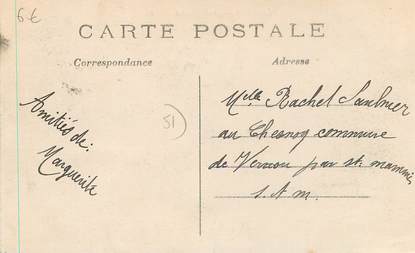 6€
CARTE POSTALE
Correspondance
Adresse
Amitiés de:
Marguerite
51
Melle Rachel Saulnier
au Chesnoy commune
de Vernou par st. mammès
S. & M.